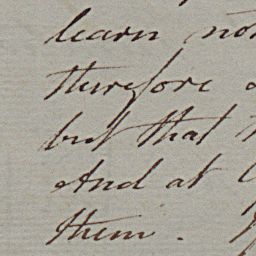 learn
therefore
but that
And at
them.